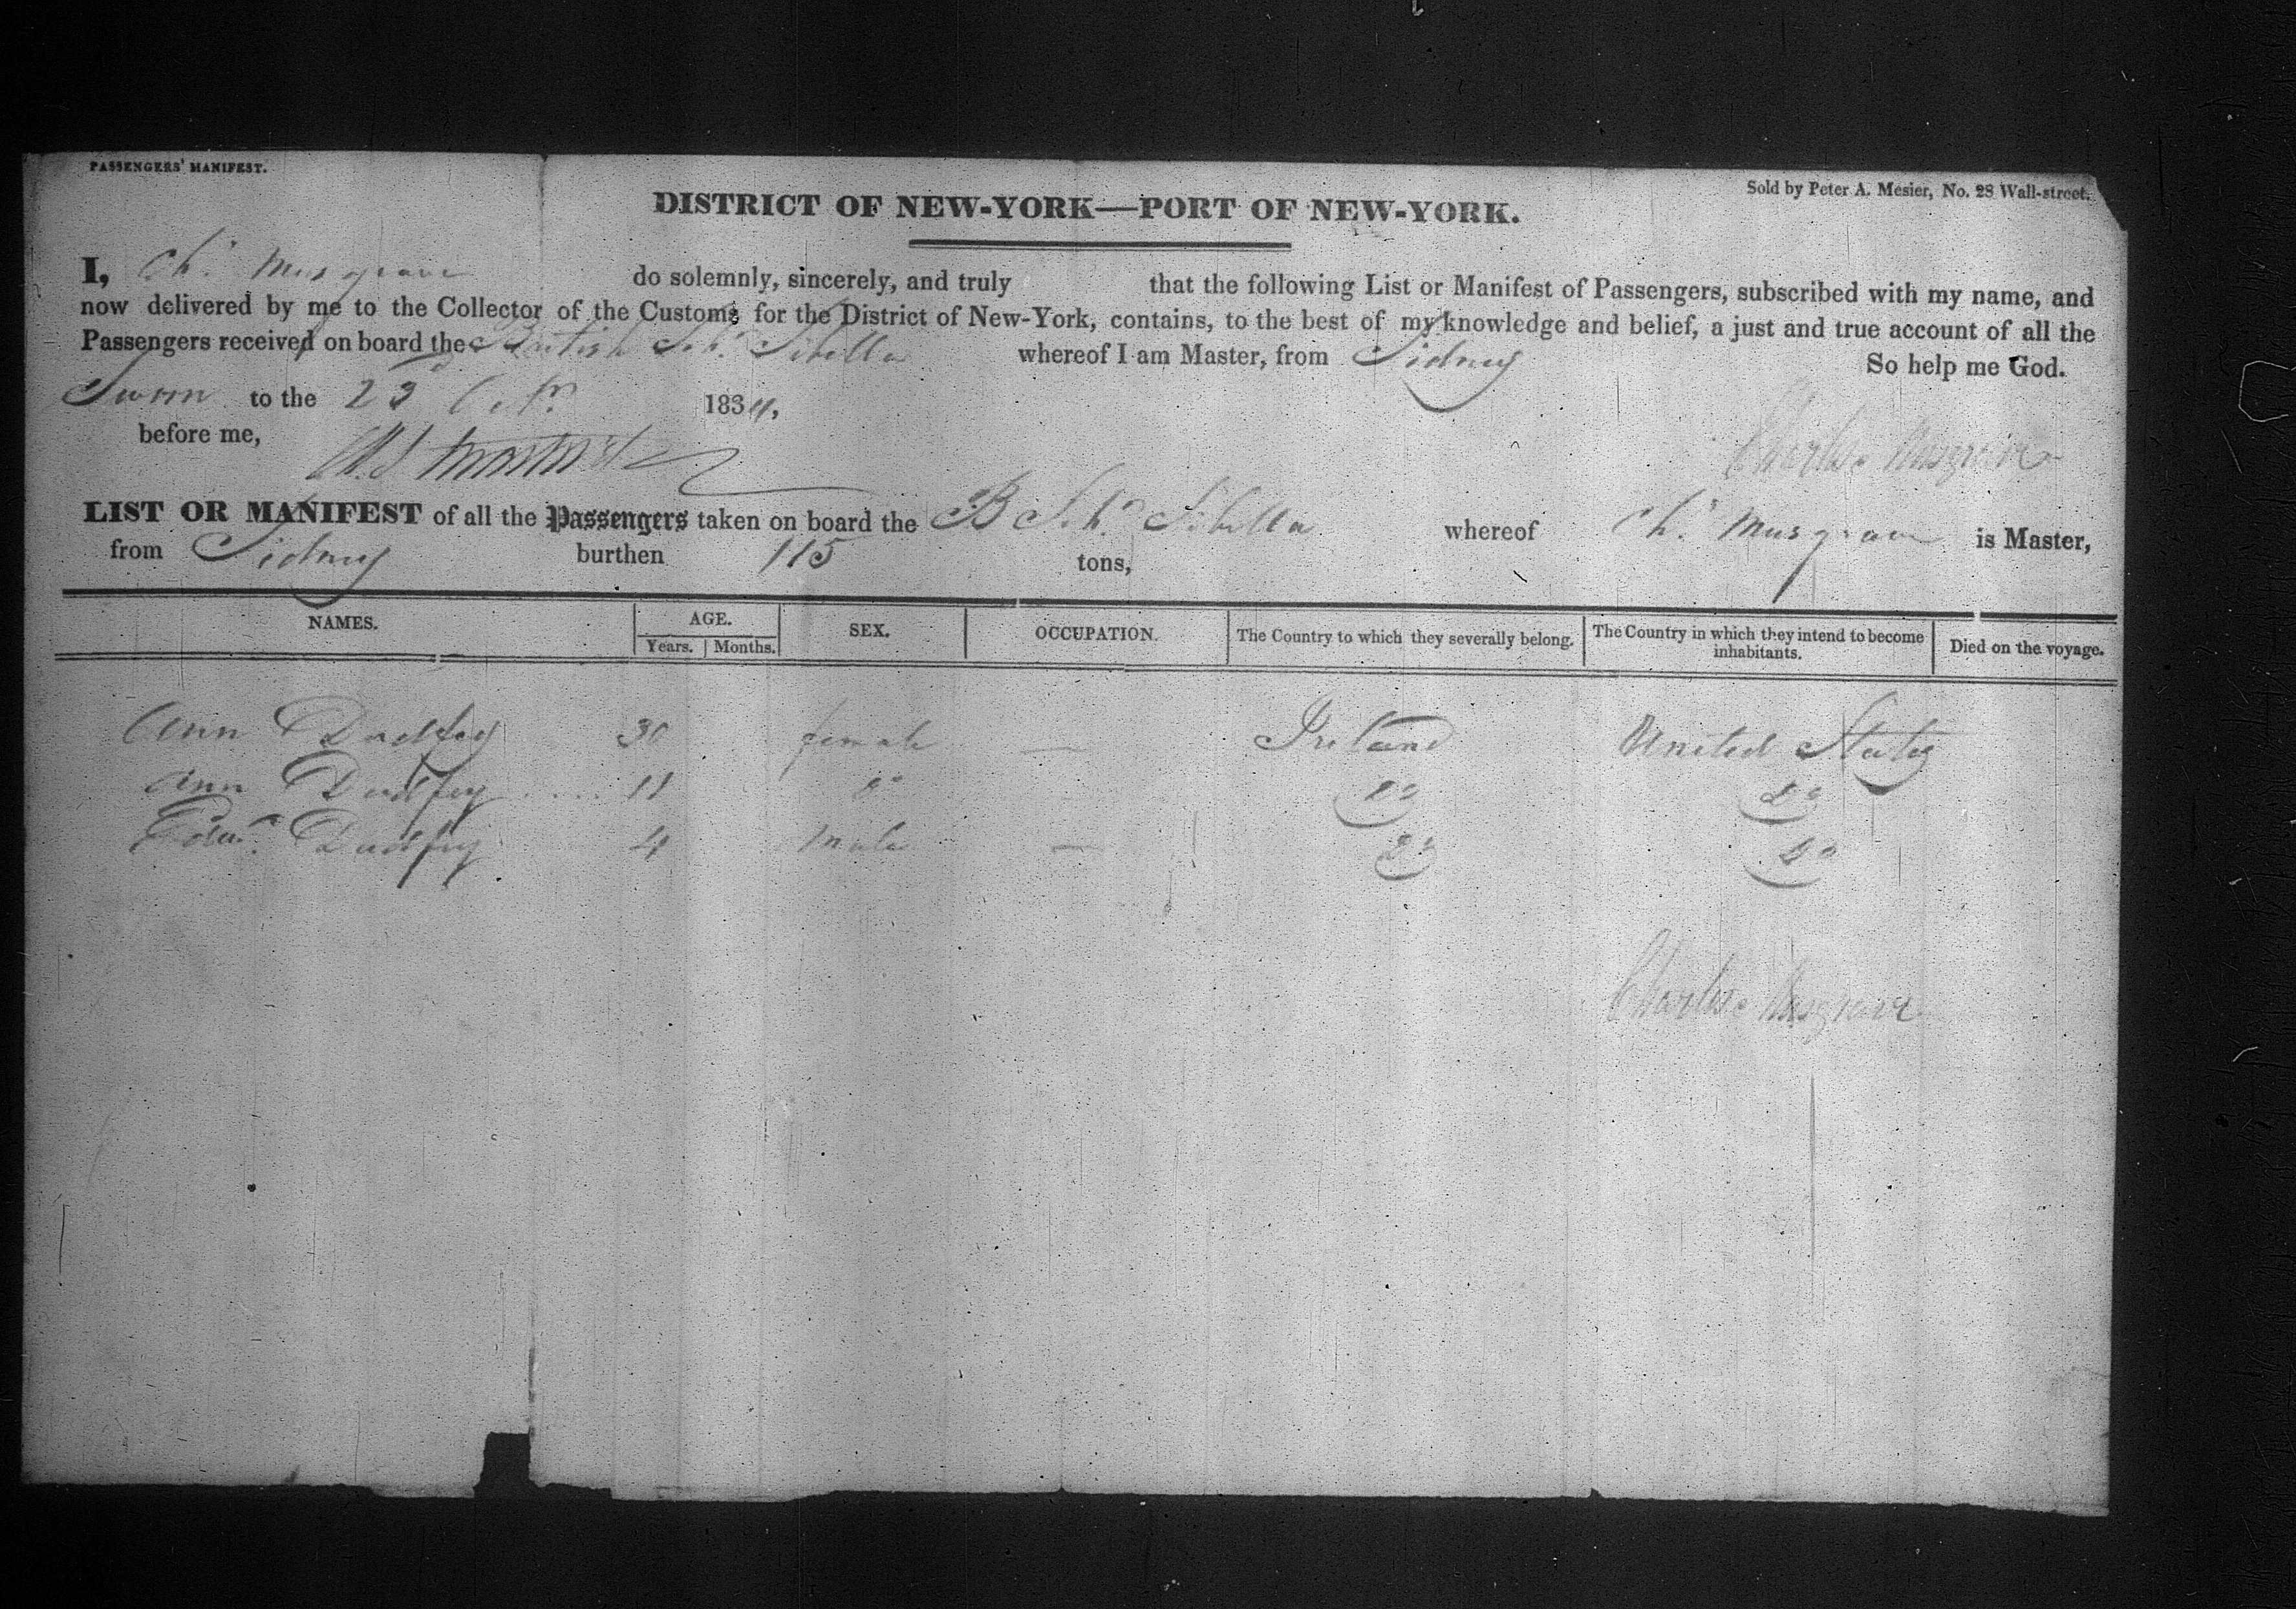 PASSENGERS' MANIFEST.
Sold by Peter A. Mesier, No. 28 Wall-street.
DISTRICT OF NEW-YORK—PORT OF NEW-YORK.
I, Chs. Musgrave do solemnly, sincerely, and truly that the following List or Manifest of Passengers, subscribed with my name, and
now delivered by me to the Collector of the Customs for the District of New-York, contains, to the best of my knowledge and belief, a just and true account of all the
Passengers received on board the British Schr. Sibella whereof I am Master, from Sidney So help me God.
Sworn to the 23 Octr. 1834,
before me,
Charles Musgrave
LIST OR MANIFEST of all the Passengers taken on board the B Schr. Sibella whereof Chs. Musgrave is Master,
from Sidney burthen 115 tons,
NAMES. AGE. Years. Months. SEX. OCCUPATION. The Country to which they severally belong. The Country in which they intend to become inhabitants. Died on the voyage.
Ann 30 female — Ireland United States
Ann 11 Do Do Do
Edwd. 4 male — Do Do
Charles Musgrave